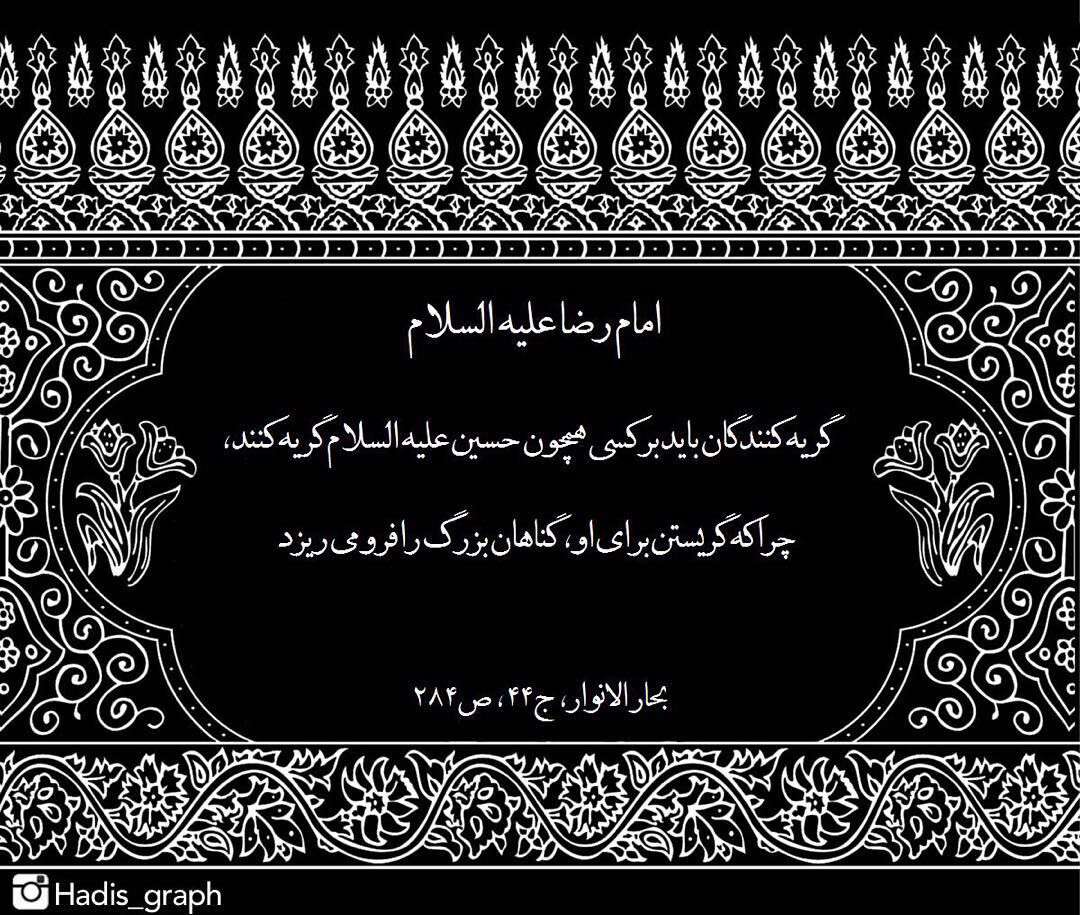 امام رضا علیه السلام
گریه کنندگان باید بر کسی همچون حسین علیه السلام گریه کنند،
چرا که گریستن برای او، گناهان بزرگ را فرو می ریزد
بحار الانوار، ج۴۴، ص۲۸۴
Hadis_graph